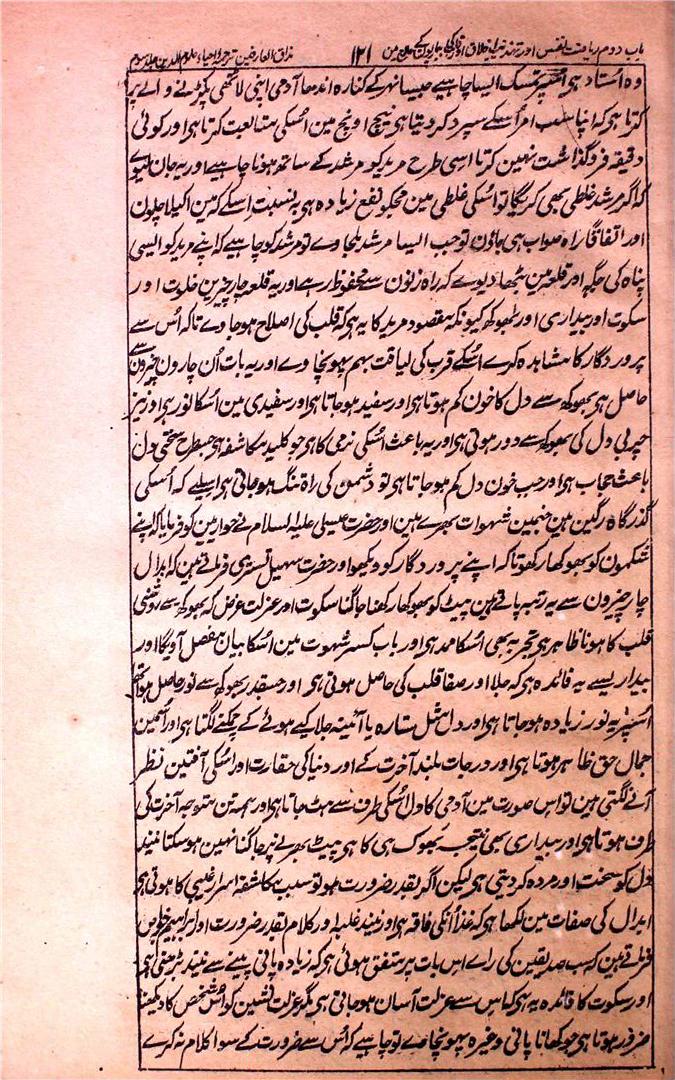 باب دوم ریاضت نفس اور تہذیب اخلاق اور قلب کی بیماریوں کے علاج مین ۱۲۱ مذاق العارفین ترجمہ احیاء علوم الدین جلد سوم
وہ اُستاد ہی اُسپر تمسک ایسا چاہیے جیسا نہر کے کنارہ اندھا آدمی اپنی لاٹھی پکڑنے والے پر
کرتا ہی کہ اپنا سب امر اُسکے سپرد کر دیتا ہی نیچ اونچ مین اُسکی متابعت کرتا ہی اور کوئی
دقیقہ فروگذاشت نہین کرتا اسی طرح مرید کو مرشد کے ساتھ ہونا چاہیے اور یہ جان لیوے
کہ اگر مرشد غلطی بھی کریگا تو اُسکی غلطی مین مجکو نفع زیادہ ہی بہ نسبت اِسکے کہ مین اکیلا چلون
اور اتفاقاً راہ صواب ہی پاؤن تو جب ایسا مرشد ملجاوے تو مرشد کو چاہیے کہ اپنے مرید کو ایسی
پناہ کی جگہ اور قلعہ مین بٹھا دیوے کہ راہ زنون سے محفوظ رہے اور یہ قلعہ چار چیزین خلوت اور
سکوت اور بیداری اور بھوکھ کیونکہ مقصود مرید کا یہ ہی کہ قلب کی اصلاح ہو جاوے تاکہ اُس سے
پروردگار کا مشاہدہ کرے اُسکے قرب کی لیاقت بہم پہونچاوے اور یہ بات اُن چارون چیزون سے
حاصل ہی بھوکھ سے دل کا خون کم ہوتا ہی اور سفید ہو جاتا ہی اور سفیدی مین اُسکا نور ہی اور نیز
چربی دل کی بھوکھ سے دور ہوتی ہی اور یہ باعث اُسکی نرمی کا ہی جو کلید مکاشفہ ہی جسطرح سختی دل
باعث حجاب ہی اور جب خون دل کم ہو جاتا ہی تو دشمن کی راہ تنگ ہو جاتی ہی اِسلیے کہ اُسکی
گذرگاہ رگین ہین جنمین شہوات بھرے ہین اور حضرت عیسیٰ علیہ السلام نے حواریین کو فرمایا کہ اپنے
شکمون کو بھوکھا رکھو تاکہ اپنے پروردگار کو دیکھو اور حضرت سہیل تستری فرماتے ہین کہ ابدال
چار چیزون سے یہ رتبہ پاتے ہین پیٹ کو بھوکھا رکھنا جاگنا سکوت اور عزلت غرض کہ بھوکھ سے روشنی
قلب کا ہونا ظاہر ہی تجربہ بھی اُسکا ممد ہی اور باب کسر شہوت مین اُسکا بیان مفصل آویگا اور
بیداری سے یہ فائدہ ہی کہ جلا اور صفا قلب کی حاصل ہوتی ہی اور جسقدر بھوکھ سے نور حاصل ہوا تھا
اُسپر یہ نور زیادہ ہو جاتا ہی اور دل مثل ستارہ یا آئینہ جلا کیے ہوئے کے چمکنے لگتا ہی اور اُسمین
جمال حق ظاہر ہوتا ہی اور درجات بلند آخرت کے اور دنیا کی حقارت اور اُسکی آفتین نظر
آنے لگتی ہین تو اس صورت مین آدمی کا دل اُسکی طرف سے ہٹ جاتا ہی اور ہمہ تن متوجہ آخرت کی
طرف ہوتا ہی اور بیداری بھی نتیجہ بھوک ہی کا ہی پیٹ بھرے پر جاگنا نہین ہو سکتا نیند
دل کو سخت اور مردہ کر دیتی ہی لیکن اگر بقدر ضرورت ہو تو سبب مکاشفہ اسرار غیبی کا ہوتی ہی
ابدال کی صفات مین لکھا ہی کہ غذا اُنکی فاقہ ہی اور نیند غلبہ اور کلام بقدر ضرورت اور ابراہیم خواص
فرماتے ہین کہ سب صدیقین کی راے اس بات پر متفق ہوئی ہی کہ زیادہ پانی پینے سے نیند بڑھتی ہی
اور سکوت کا فائدہ یہ ہی کہ اس سے عزلت آسان ہو جاتی ہی مگر عزلت نشین کو اُس شخص کا دیکھنا
ضرور ہوتا ہی جو کھانا پانی وغیرہ پہونچاوے تو چاہیے کہ اُس سے ضرورت کے سوا کلام نہ کرے